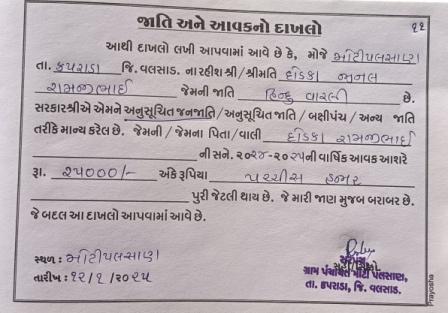 જાતિ અને આવકનો દાખલો
૧૨
આથી દાખલો લખી આપવામાં આવે છે કે, મોજે મોટીપલસાણ
તા. કપરાડા જિ. વલસાડ. ના રહીશ શ્રી/શ્રીમતિ
રામજીભાઈ જેમની જાતિ હિન્દુ વારલી છે.
સરકારશ્રીએ એમને અનુસૂચિત જનજાતિ/અનુસૂચિત જાતિ / બક્ષીપંચ / અન્ય જાતિ
તરીકે માન્ય કરેલ છે. જેમની / જેમના પિતા/વાલી રામજીભાઈ
ની સને. ૨૦૨૪-૨૦૨૫ની વાર્ષિક આવક આશરે
રૂા. ૨૫૦૦૦/- અંકે રૂપિયા પચ્ચીસ હજાર
પુરી જેટલી થાય છે. જે મારી જાણ મુજબ બરાબર છે.
જે બદલ આ દાખલો આપવામાં આવે છે.
સ્થળ : મોટીપલસાણ
તારીખ : ૧૨/૧/૨૦૨૫
ગ્રામ પંચાયત મોટી પલસાણ,
તા. કપરાડા, જિ. વલસાડ.
Prayosha